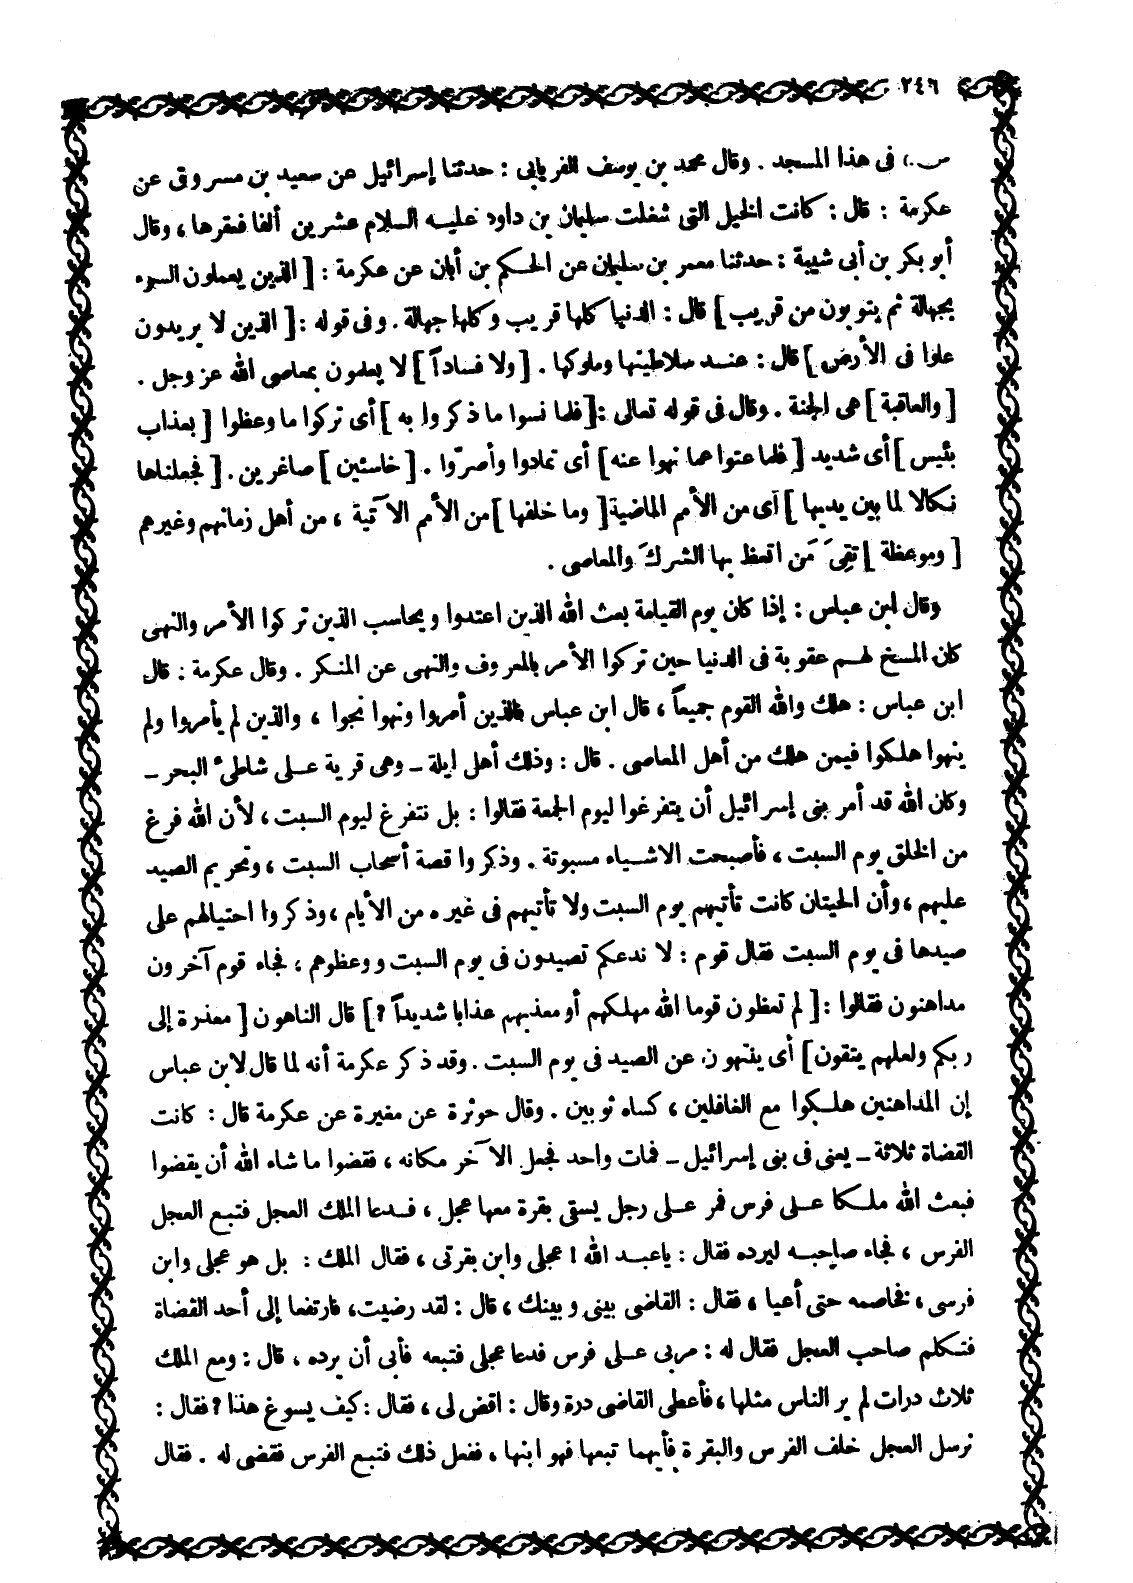 ٢٤٦
فى هذا المسجد . وقال محمد بن يوسف الفريابى : حدثنا إسرائيل عن سعيد بن مسروق عن
عكرمة : قال : كانت الخيل التى شغلت سليمان بن داود عليه السلام عشرين ألفا فعقرها ، وقال
أبو بكر بن أبى شيبة : حدثنا معمر بن سليمان عن الحكم بن أبان عن عكرمة : [ الذين يعملون السوء
بجهالة ثم يتوبون من قريب ] قال : الدنيا كلها قريب وكلها جهالة . وفى قوله : [ الذين لا يريدون
علوا فى الأرض ] قال : عند سلاطينها وملوكها . [ ولا فساداً ] لا يعملون بمعاصى الله عز وجل .
[ والعاقبة ] هى الجنة . وقال فى قوله تعالى : [ فلما نسوا ما ذكروا به ] أى تركوا ما وعظوا [ بعذاب
بئيس ] أى شديد [ فلما عتوا عما نهوا عنه ] أى تمادوا وأصرّوا . [ خاسئين ] صاغرين . [ فجعلناها
نكالا لما بين يديها ] أى من الأمم الماضية [ وما خلفها ] من الأمم الآتية ، من أهل زمانهم وغيرهم
[ وموعظة ] تقِىَ مَن اتعظ بها الشركَ والمعاصى .
وقال ابن عباس : إذا كان يوم القيامة بعث الله الذين اعتدوا ويحاسب الذين تركوا الأمر والنهى
كان المسخ لهم عقوبة فى الدنيا حين تركوا الأمر بالمعروف والنهى عن المنكر . وقال عكرمة : قال
ابن عباس : هلك والله القوم جميعاً ، قال ابن عباس فالذين أمروا ونهوا نجوا ، والذين لم يأمروا ولم
ينهوا هلكوا فيمن هلك من أهل المعاصى . قال : وذلك أهل ايلة ـ وهى قرية على شاطىء البحر ـ
وكان الله قد أمر بنى إسرائيل أن يتفرغوا ليوم الجمعة فقالوا : بل نتفرغ ليوم السبت ، لأن الله فرغ
من الخلق يوم السبت ، فأصبحت الاشياء مسبوتة . وذكروا قصة أصحاب السبت ، وتحريم الصيد
عليهم ، وأن الحيتان كانت تأتيهم يوم السبت ولا تأتيهم فى غيره من الأيام ، وذكروا احتيالهم على
صيدها فى يوم السبت فقال قوم : لا ندعكم تصيدون فى يوم السبت ووعظوهم ، فجاء قوم آخرون
مداهنون فقالوا : [ لم تعظون قوما الله مهلكهم أو معذبهم عذابا شديداً ؟ ] قال الناهون [ معذرة إلى
ربكم ولعلهم يتقون ] أى ينتهون عن الصيد فى يوم السبت . وقد ذكر عكرمة أنه لما قال لابن عباس
إن المداهنين هلكوا مع الغافلين ، كساه ثوبين . وقال حوثرة عن مغيرة عن عكرمة قال : كانت
القضاة ثلاثة ـ يعنى فى بنى إسرائيل ـ فمات واحد فجعل الآخر مكانه ، فقضوا ما شاء الله أن يقضوا
فبعث الله ملكا على فرس فمر على رجل يسقى بقرة معها عجل ، فدعا الملك العجل فتبع العجل
الفرس ، فجاء صاحبه ليرده فقال : يا عبد الله ! عجلى وابن بقرتى ، فقال الملك : بل هو عجلى وابن
فرسى ، فخاصمه حتى أعيا ، فقال : القاضى بينى وبينك ، قال : لقد رضيت ، فارتفعا إلى أحد القضاة
فتكلم صاحب العجل فقال له : مر بى على فرس فدعا عجلى فتبعه فأبى أن يرده ، قال : ومع الملك
ثلاث درات لم ير الناس مثلها ، فأعطى القاضى درة وقال : اقض لى ، فقال : كيف يسوغ هذا ؟ فقال :
نرسل العجل خلف الفرس والبقرة فأيهما تبعها فهو ابنها ، ففعل ذلك فتبع الفرس فقضى له . فقال